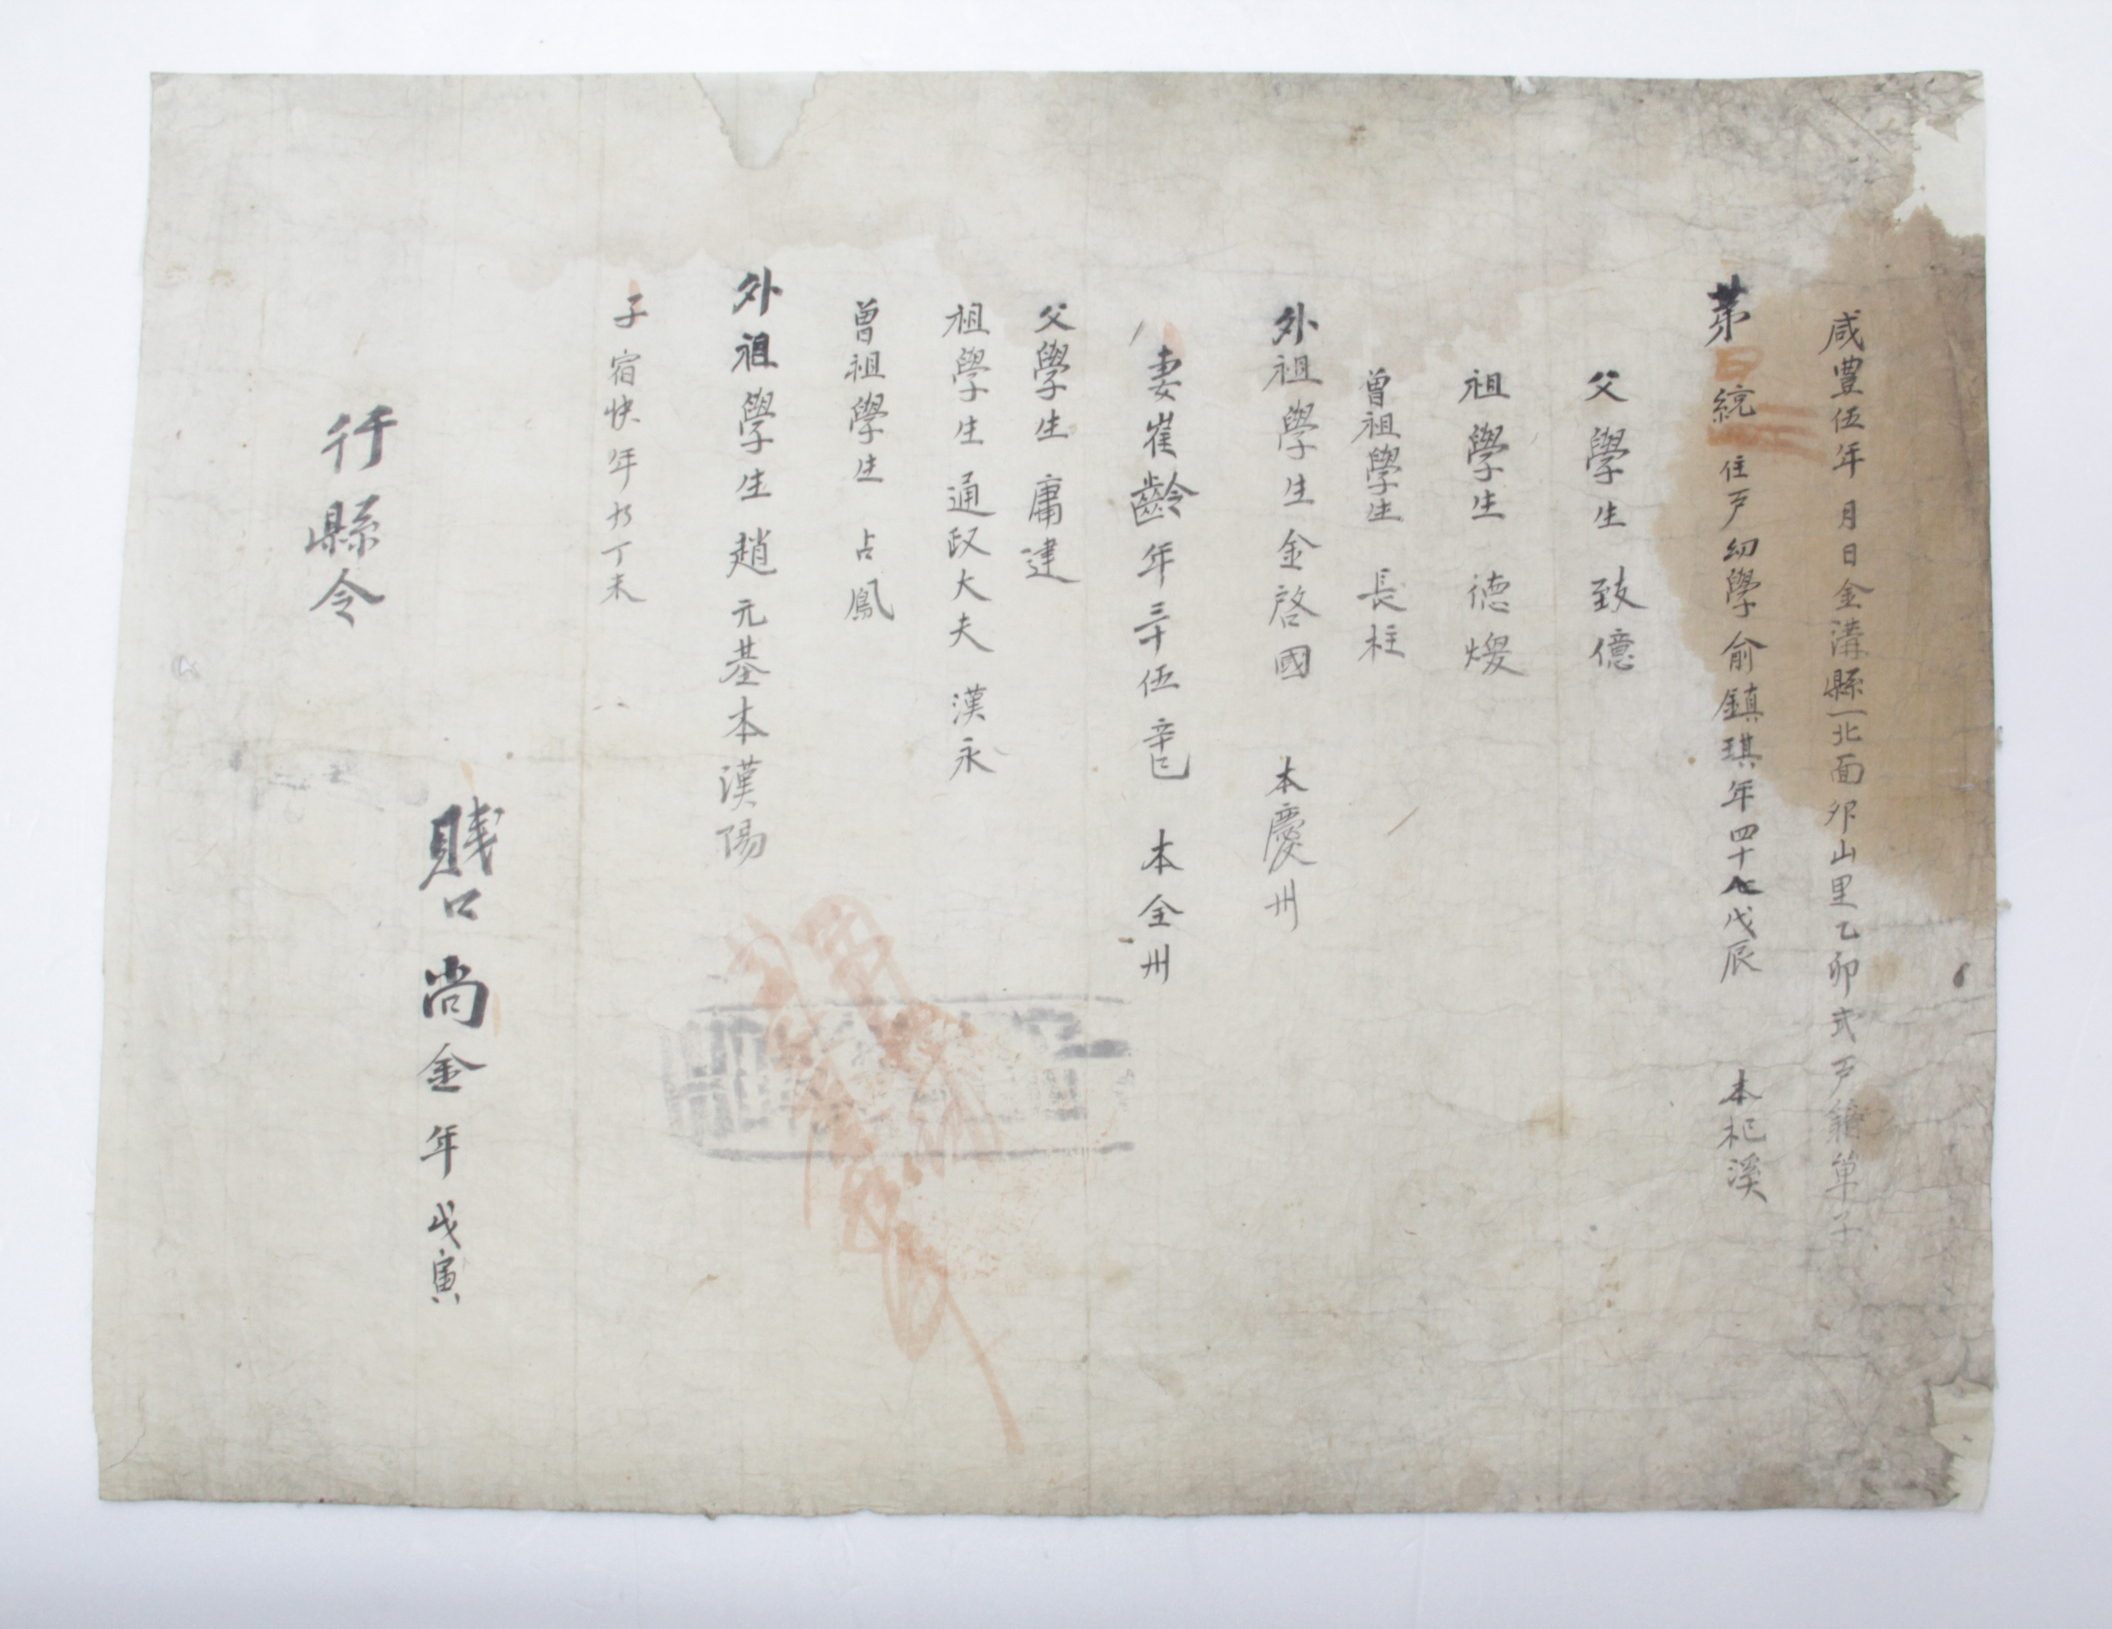 咸豊伍年 月 日金溝縣一北面夘山里乙卯式戶籍單子
第 統 住戶幼學俞鎮琪年四十八戊辰 本杞溪
父學生 致億
祖學生 徳煖
曾祖學生 長柱
外祖學生金啓國 本慶州
妻崔齡年三十伍辛巳 本全州
父學生 庸建
祖學生 通政大夫 漢永
曾祖學生 占鳳
外祖學生趙元基本漢陽
子 宿快年九丁未
賎口尚金年戊寅
行縣令